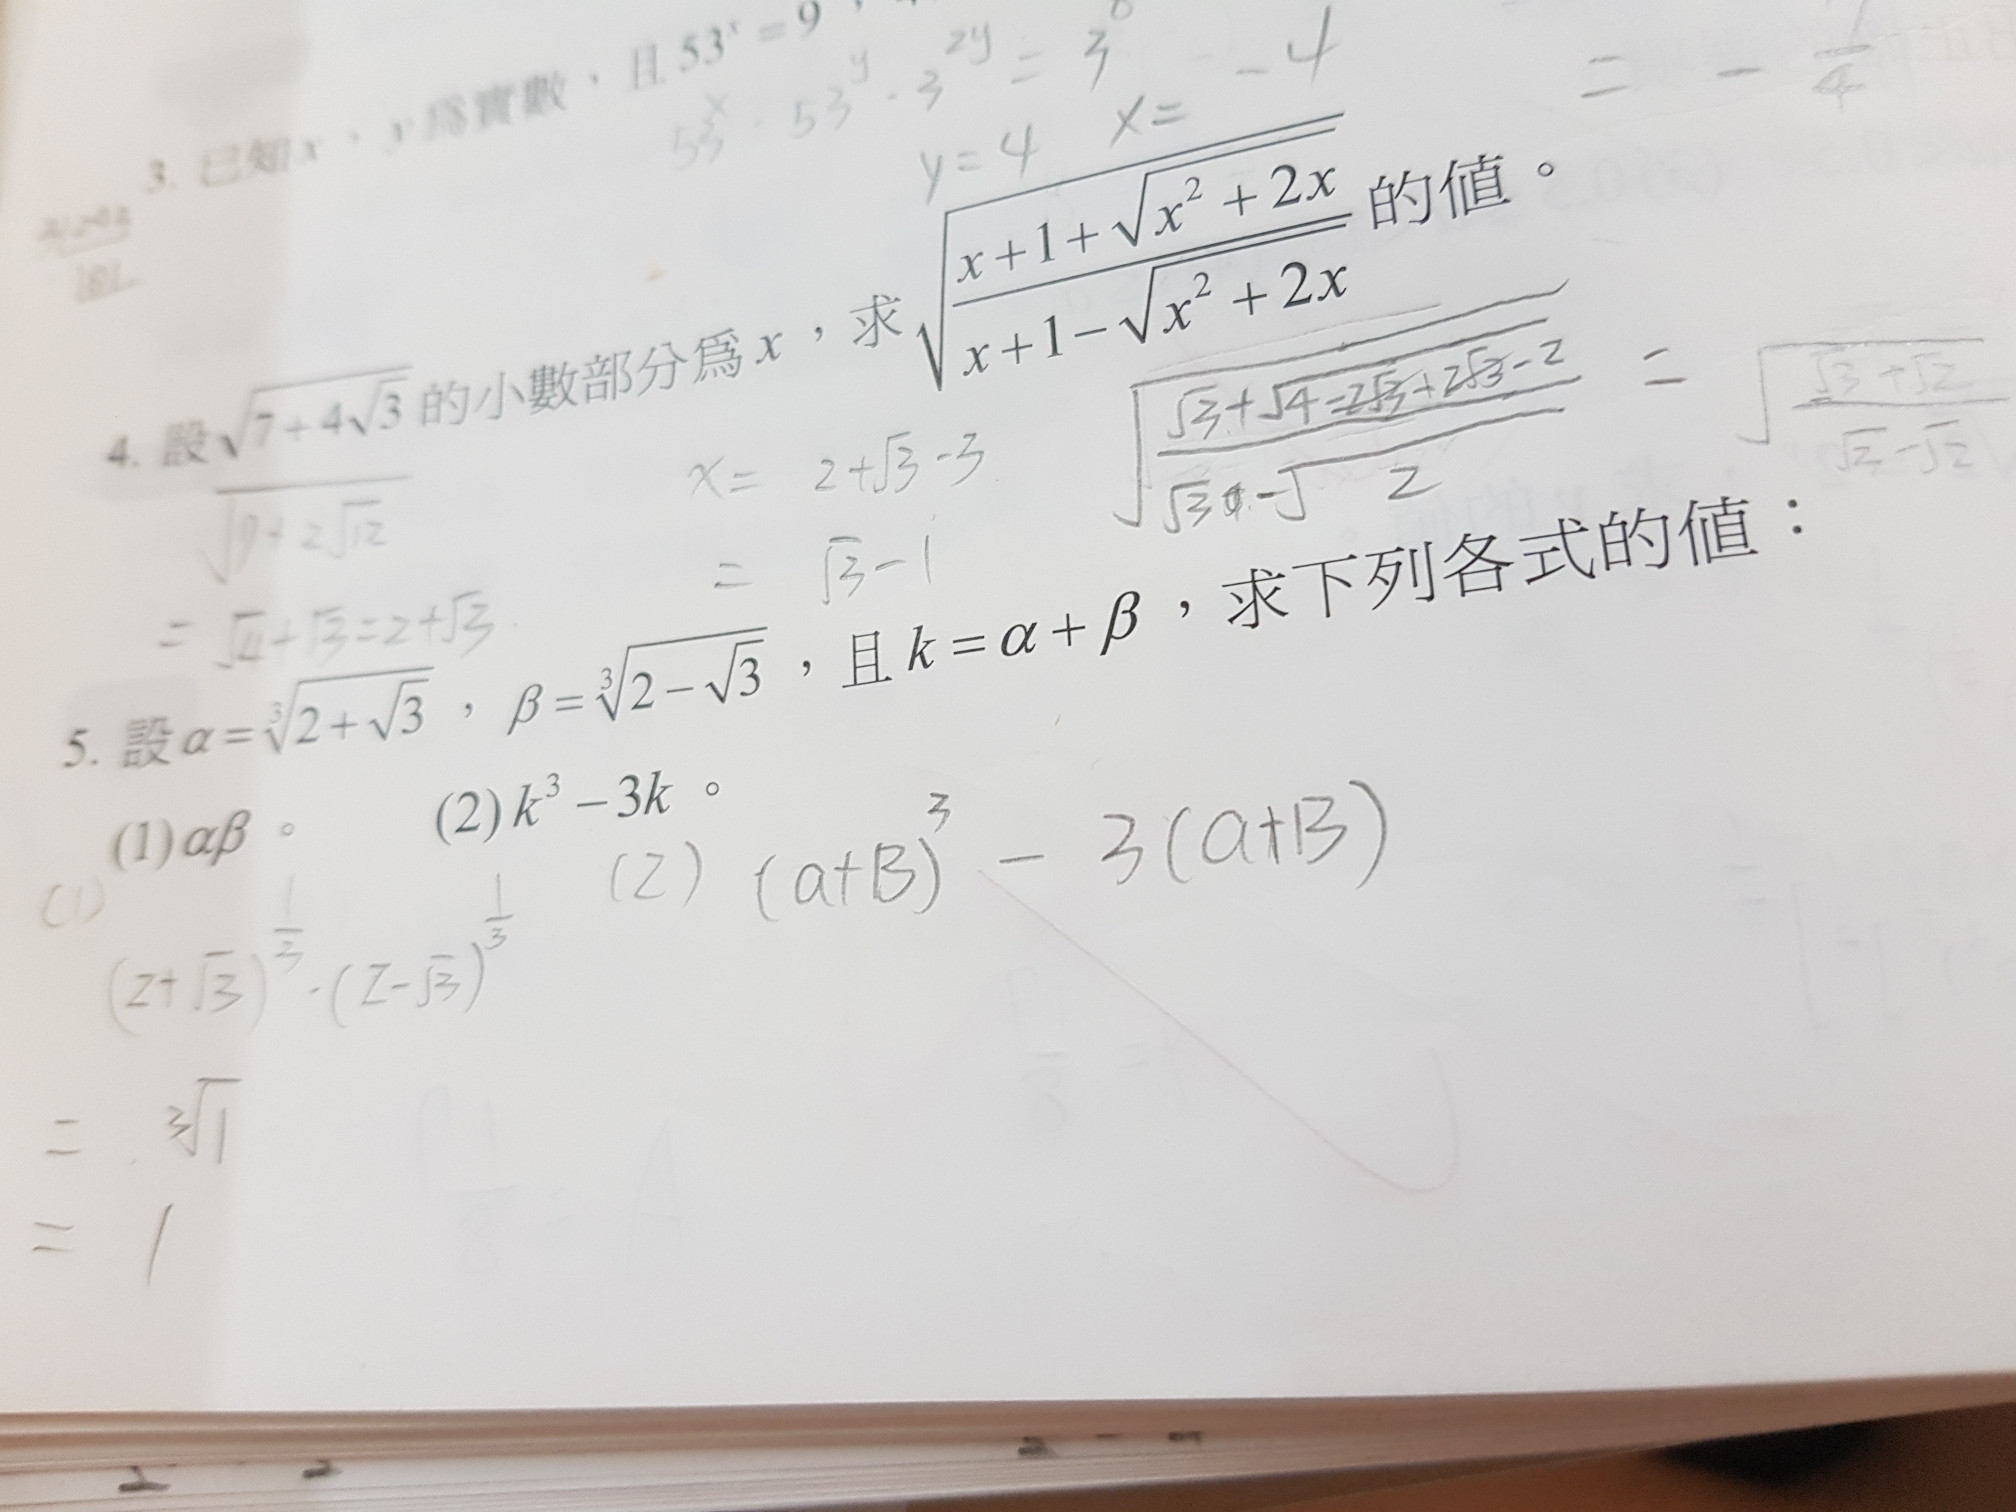 3. 已知x，y爲實數，且53ˣ=9，
53ˣ · 53ʸ · 3²ʸ = 3
y=4 x= -4
= -
4. 設√(7+4√3)的小數部分爲x，求√((x+1+√(x²+2x))/(x+1-√(x²+2x)))的值。
2√12
= √4+√3=2+√3
x= 2+√3-3
= √3-1
√((√3+√(4-2√3+2√3-2))/(√3-√2)) = √((√3+√2)/(√2-√2))
5. 設α=∛(2+√3)，β=∛(2-√3)，且k=α+β，求下列各式的值：
(1)αβ。 (2)k³-3k。
(1) (2+√3)^(1/3)·(2-√3)^(1/3)
= ∛1
= 1
(2) (a+B)³ - 3(a+B)